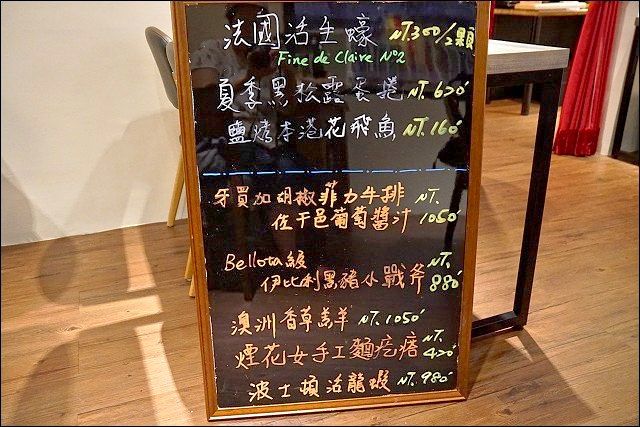 法國活生蠔 NT.360/2顆
Fine de Claire Nº2
夏季黑松露蛋捲 NT.620
鹽烤本港花飛魚 NT.160
牙買加胡椒菲力牛排 NT.
佐干邑葡萄醬汁 1050
Bellota級 NT.
伊比利黑豬小戰斧 880
澳洲香草羔羊 NT.1050
煙花女手工麵疙瘩 NT.
420
波士頓活龍蝦 NT.980